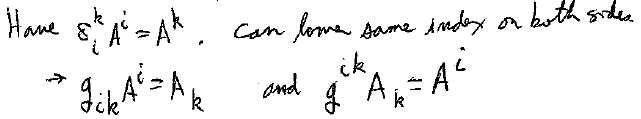 Have δ_i^k A^i = A^k. Can lower same index on both sides
→ g_{ik} A^i = A_k and g^{ik} A_k = A^i